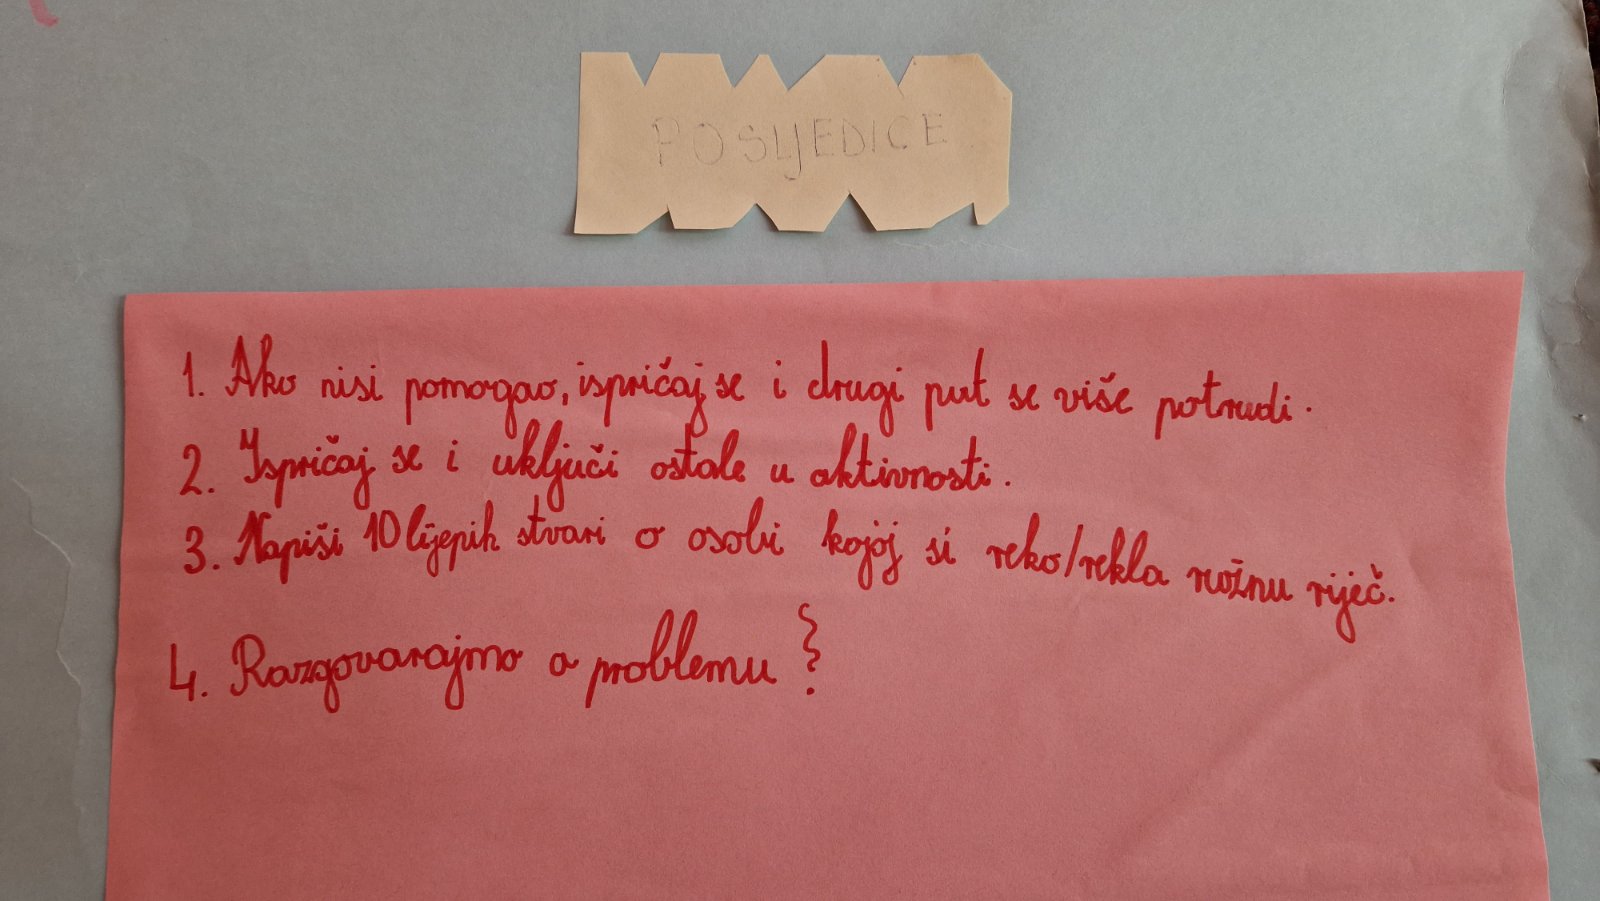 POSLJEDICE
1. Ako nisi pomogao, ispričaj se i drugi put se više potrudi.
2. Ispričaj se i uključi ostale u aktivnosti.
3. Napiši 10 lijepih stvari o osobi kojoj si reko/rekla ružnu riječ.
4. Razgovarajmo o problemu!